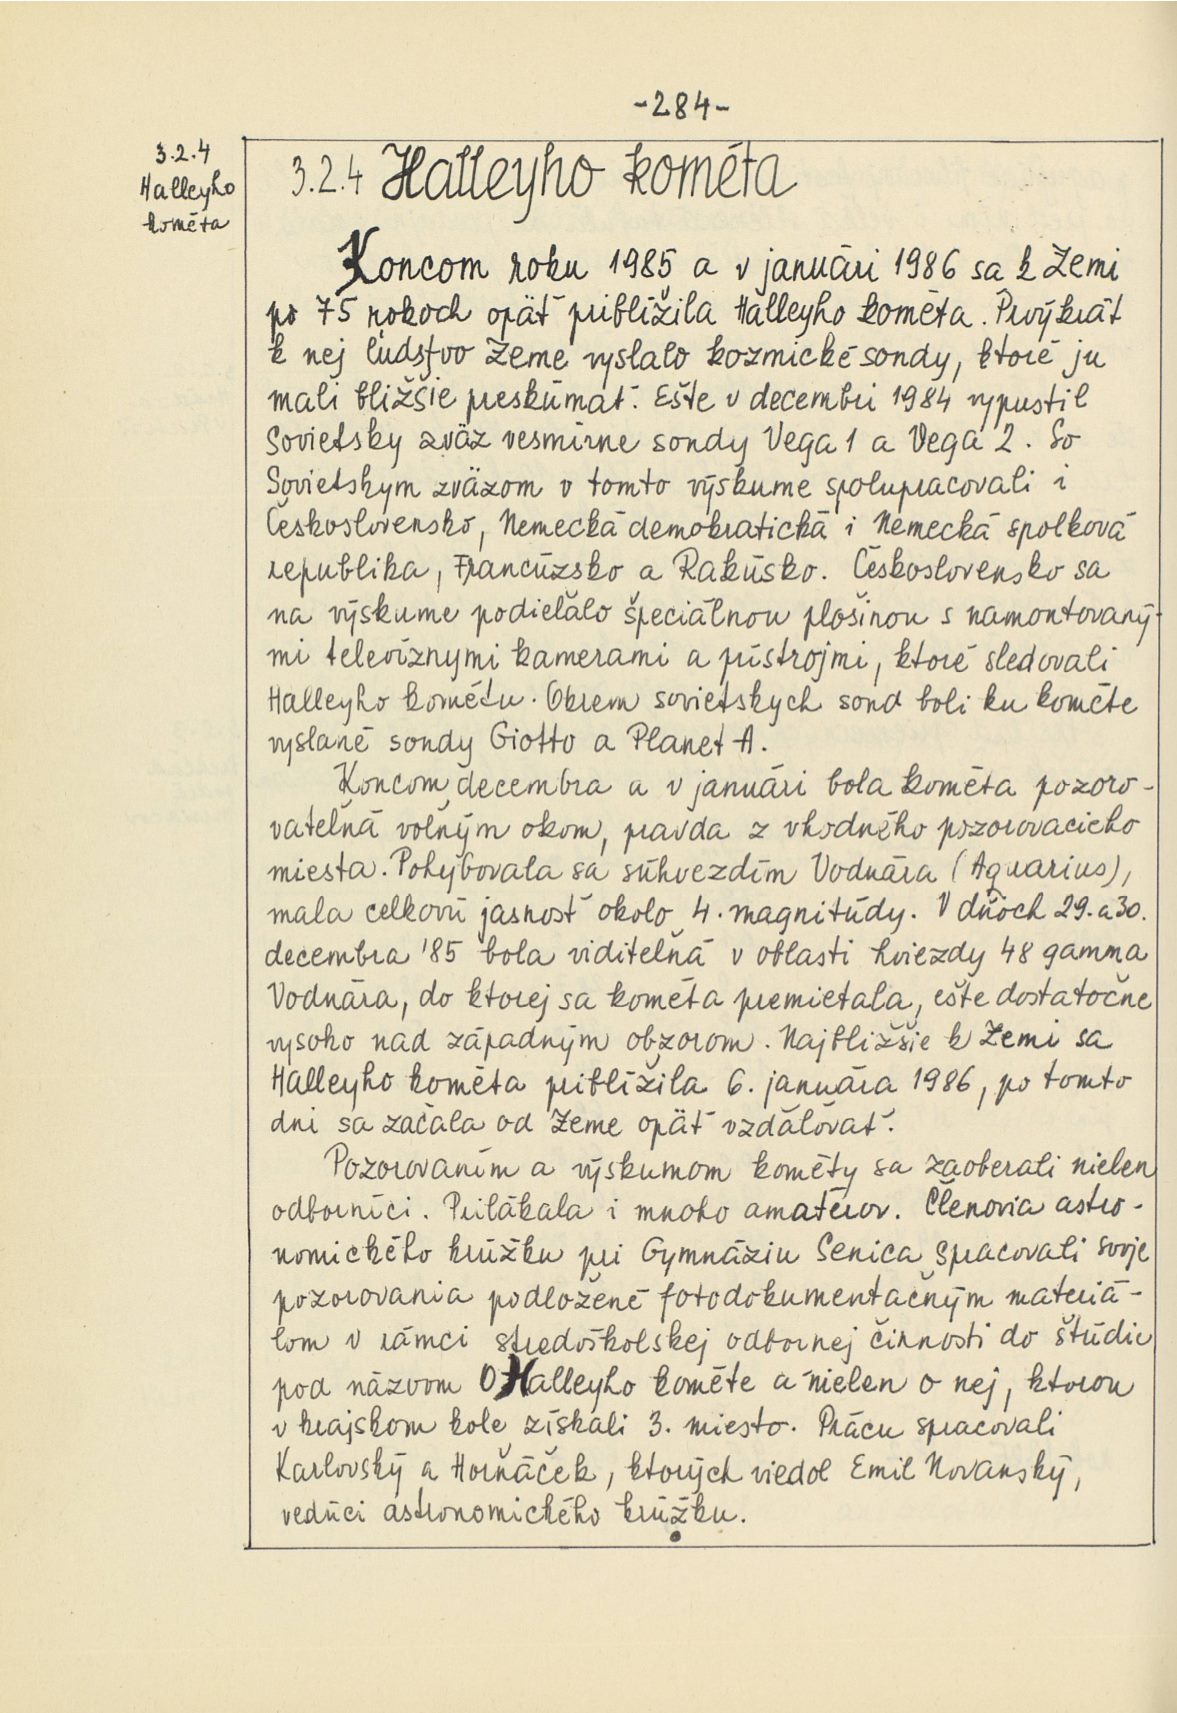 -284-
3.2.4
Halleyho
kométa
3.2.4 Halleyho kométa
Koncom roku 1985 a v januári 1986 sa k Zemi
po 75 rokoch opäť priblížila Halleyho kométa. Prvýkrát
k nej ľudstvo Zeme vyslalo kozmické sondy, ktoré ju
mali bližšie preskúmať. Ešte v decembri 1984 vypustil
Sovietsky zväz vesmírne sondy Vega 1 a Vega 2. So
Sovietskym zväzom v tomto výskume spolupracovali i
Československo, Nemecká demokratická i Nemecká spolková
republika, Francúzsko a Rakúsko. Československo sa
na výskume podieľalo špeciálnou plošinou s namontovaný-
mi televíznymi kamerami a prístrojmi, ktoré sledovali
Halleyho kométu. Okrem sovietskych sond boli ku kométe
vyslané sondy Giotto a Planet A.
Koncom decembra a v januári bola kométa pozoro-
vateľná voľným okom, pravda z vhodného pozorovacieho
miesta. Pohybovala sa súhvezdím Vodnára (Aquarius),
mala celkovú jasnosť okolo 4. magnitúdy. V dňoch 29. a 30.
decembra '85 bola viditeľná v oblasti hviezdy 48 gamma
Vodnára, do ktorej sa kométa premietala, ešte dostatočne
vysoko nad západným obzorom. Najbližšie k Zemi sa
Halleyho kométa priblížila 6. januára 1986, po tomto
dni sa začala od Zeme opäť vzďaľovať.
Pozorovaním a výskumom kométy sa zaoberali nielen
odborníci. Prilákala i mnoho amatérov. Členovia astro-
nomického krúžku pri Gymnáziu Senica spracovali svoje
pozorovania podložené fotodokumentačným materiá-
lom v rámci stredoškolskej odbornej činnosti do štúdie
pod názvom O Halleyho kométe a nielen o nej, ktorou
v krajskom kole získali 3. miesto. Prácu spracovali
Karlovský a Horňáček, ktorých viedol Emil Novanský,
vedúci astronomického krúžku.